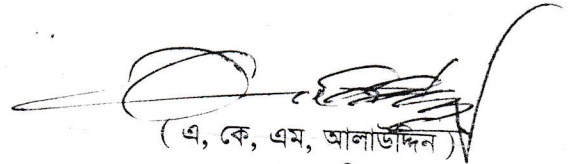 ( এ, কে, এম, আলাউদ্দিন )